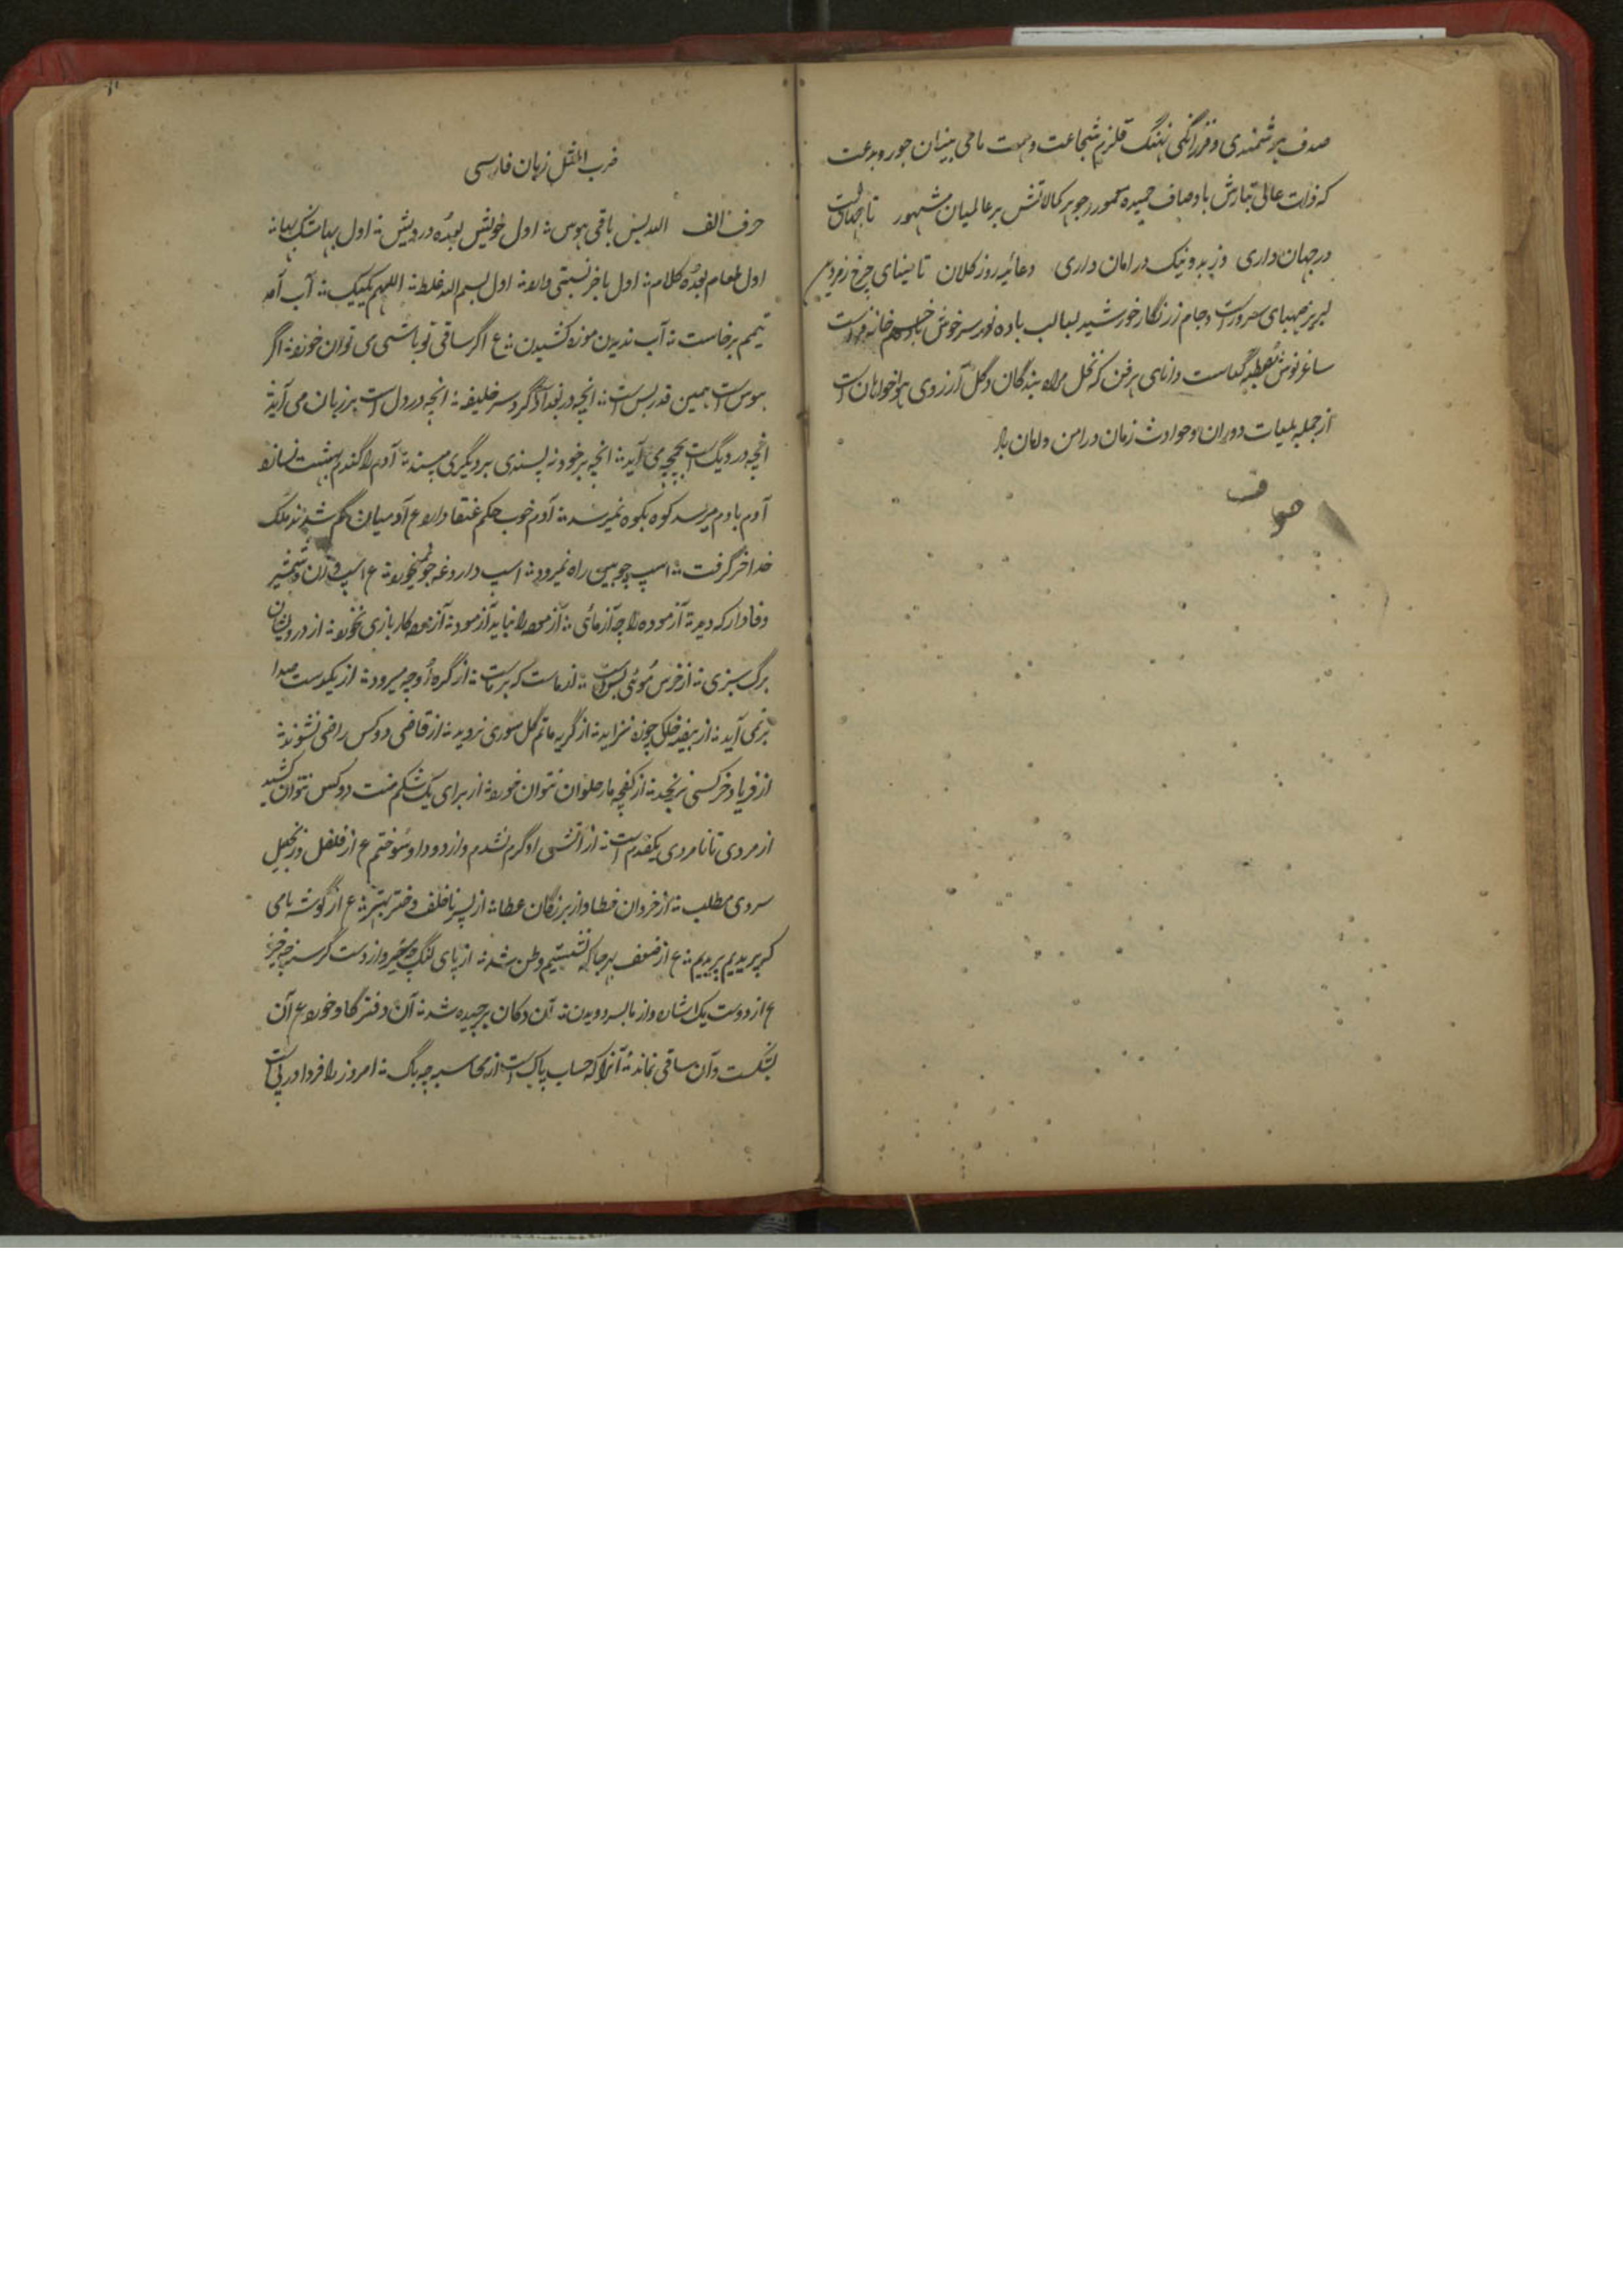 صدف هوشمندی و فرزانگی نهنگ قلزم شجاعت و همت ماحی بنیان جور و بدعت
که ذات عالی تبارش باوصاف حمیده معمور و جوهر کمالاتش بر عالمیان مشهور تا جهان است
در جهان داری و زبد و نیک در امان داری دعائیه روز کلان تا مینای چرخ زمردین
لبریز صهبای سرور است و جام زرنگار خورشید لبالب باده نور سرخوش خانه
ساغر نوش و دانای هر فن که نخل مراد بندگان و گل آرزوی هواخواهان است
از جمله بلیات دوران و حوادث زمان در امن و امان باد
ضرب المثل زبان فارسی
حرف الف الله بس باقی هوس اول خویش بعده درویش اول
اول طعام بعده کلام اول باخر نسبتی دارد اول بسم الله غلط اللهم لبیک آب آمد
تیمم برخاست آب ندیدن موزه کشیدن ع اگر ساقی تو باشی می توان خورد اگر
هوس است همین قدر بس است انچه در بغداد است گرد سر خلیفه انچه در دل است بر زبان می آید
انچه در دیگ است بچمچه می آید انچه بر خود نه پسندی بر دیگری مپسند آدم را گندم بهشت نسازد
آدم بادم میرسد کوه بکوه نمیرسد آدم خوب حکم عنقا دارد ع آدمیان گم شدند ملک
خدا خر گرفت اسپ چوبین راه نمیرود اسپ داروغه جو نمیخورد ع اسپ و زن و شمشیر
وفادار که دید آزموده را چه آزمائی آزموده را نباید آزمود آزموده کار بازی نخورد از درویشان
برگ سبزی از خرس موئی بس است از ماست که بر ماست از گره او چه میرود از یکدست صدا
بر نمی آید از بیضه خاکی چوزه نزاید از گریه ماتم گل سوری نروید از قاضی دو کس راضی نشوند
از فریاد خر کسی نرنجد از کفچه مار حلوا نتوان خورد از برای یک شکم منت دو کس نتوان کشید
از مردی تا نامردی یکقدم است از آتش او گرم نشدم و از دود او سوختم ع از فلفل و زنجبیل
سردی مطلب از خردان خطا و از بزرگان عطا از پسر ناخلف دختر بهتر ع از گوشه بامی
که پریدیم پریدیم ع از ضعف بهر جا که نشستیم وطن شد از پای لنگ چه سیر و از دست گرسنه چه خیر
ع از دوست یک اشاره و از ما بسر دویدن آن دکان برچیده شد آن دفتر گاو خورد ع آن
بشکست و آن ساقی نماند آنرا که حساب پاک است از محاسبه چه باک امروز را فردا در پی است